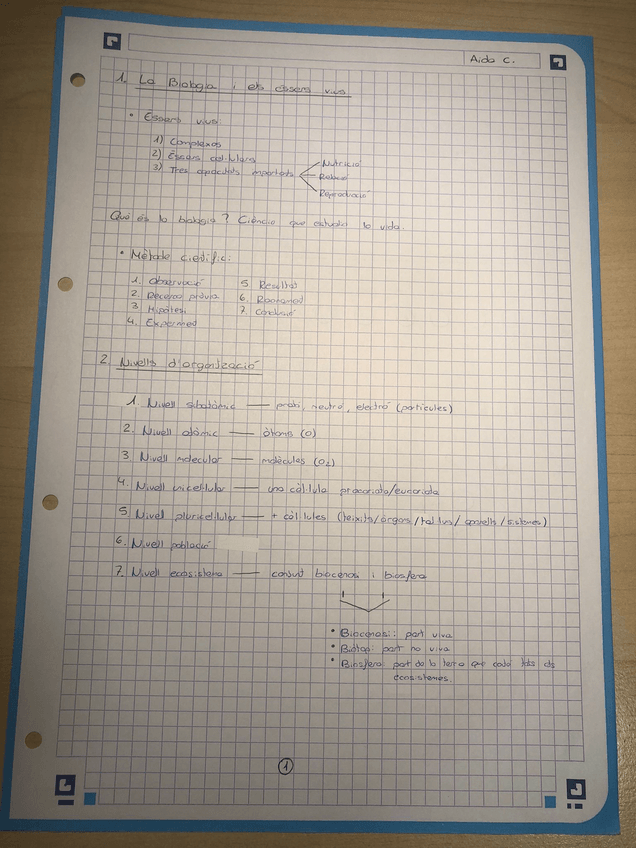 Aida C.
1. La Biologia i els éssers vius
• Éssers vius:
1) Complexos
2) Éssers cel·lulars
3) Tres capacitats importants
Nutrició
Relació
Reproducció
Què és la biologia? Ciència que estudia la vida.
• Mètode científic:
1. Observació
2. Recerca prèvia
3 Hipòtesi
4. Experiment
5 Resultat
6. Raonament
7. Conclusió
2. Nivells d'organització
1. Nivell subatòmic — protó, neutró, electró (partícules)
2. Nivell atòmic — àtoms (O)
3 Nivell molecular — molècules (O₂)
4. Nivell unicel·lular — una cèl·lula procariota/eucariota
5. Nivell pluricel·lular — + cèl·lules (teixits/òrgans/tal·lus/aparells/sistemes)
6. Nivell població
7. Nivell ecosistema — conjunt biocenosi i biosfera
• Biocenosi: part viva
• Biòtop: part no viva
• Biosfera part de la terra que conté tots els
ecosistemes.
1